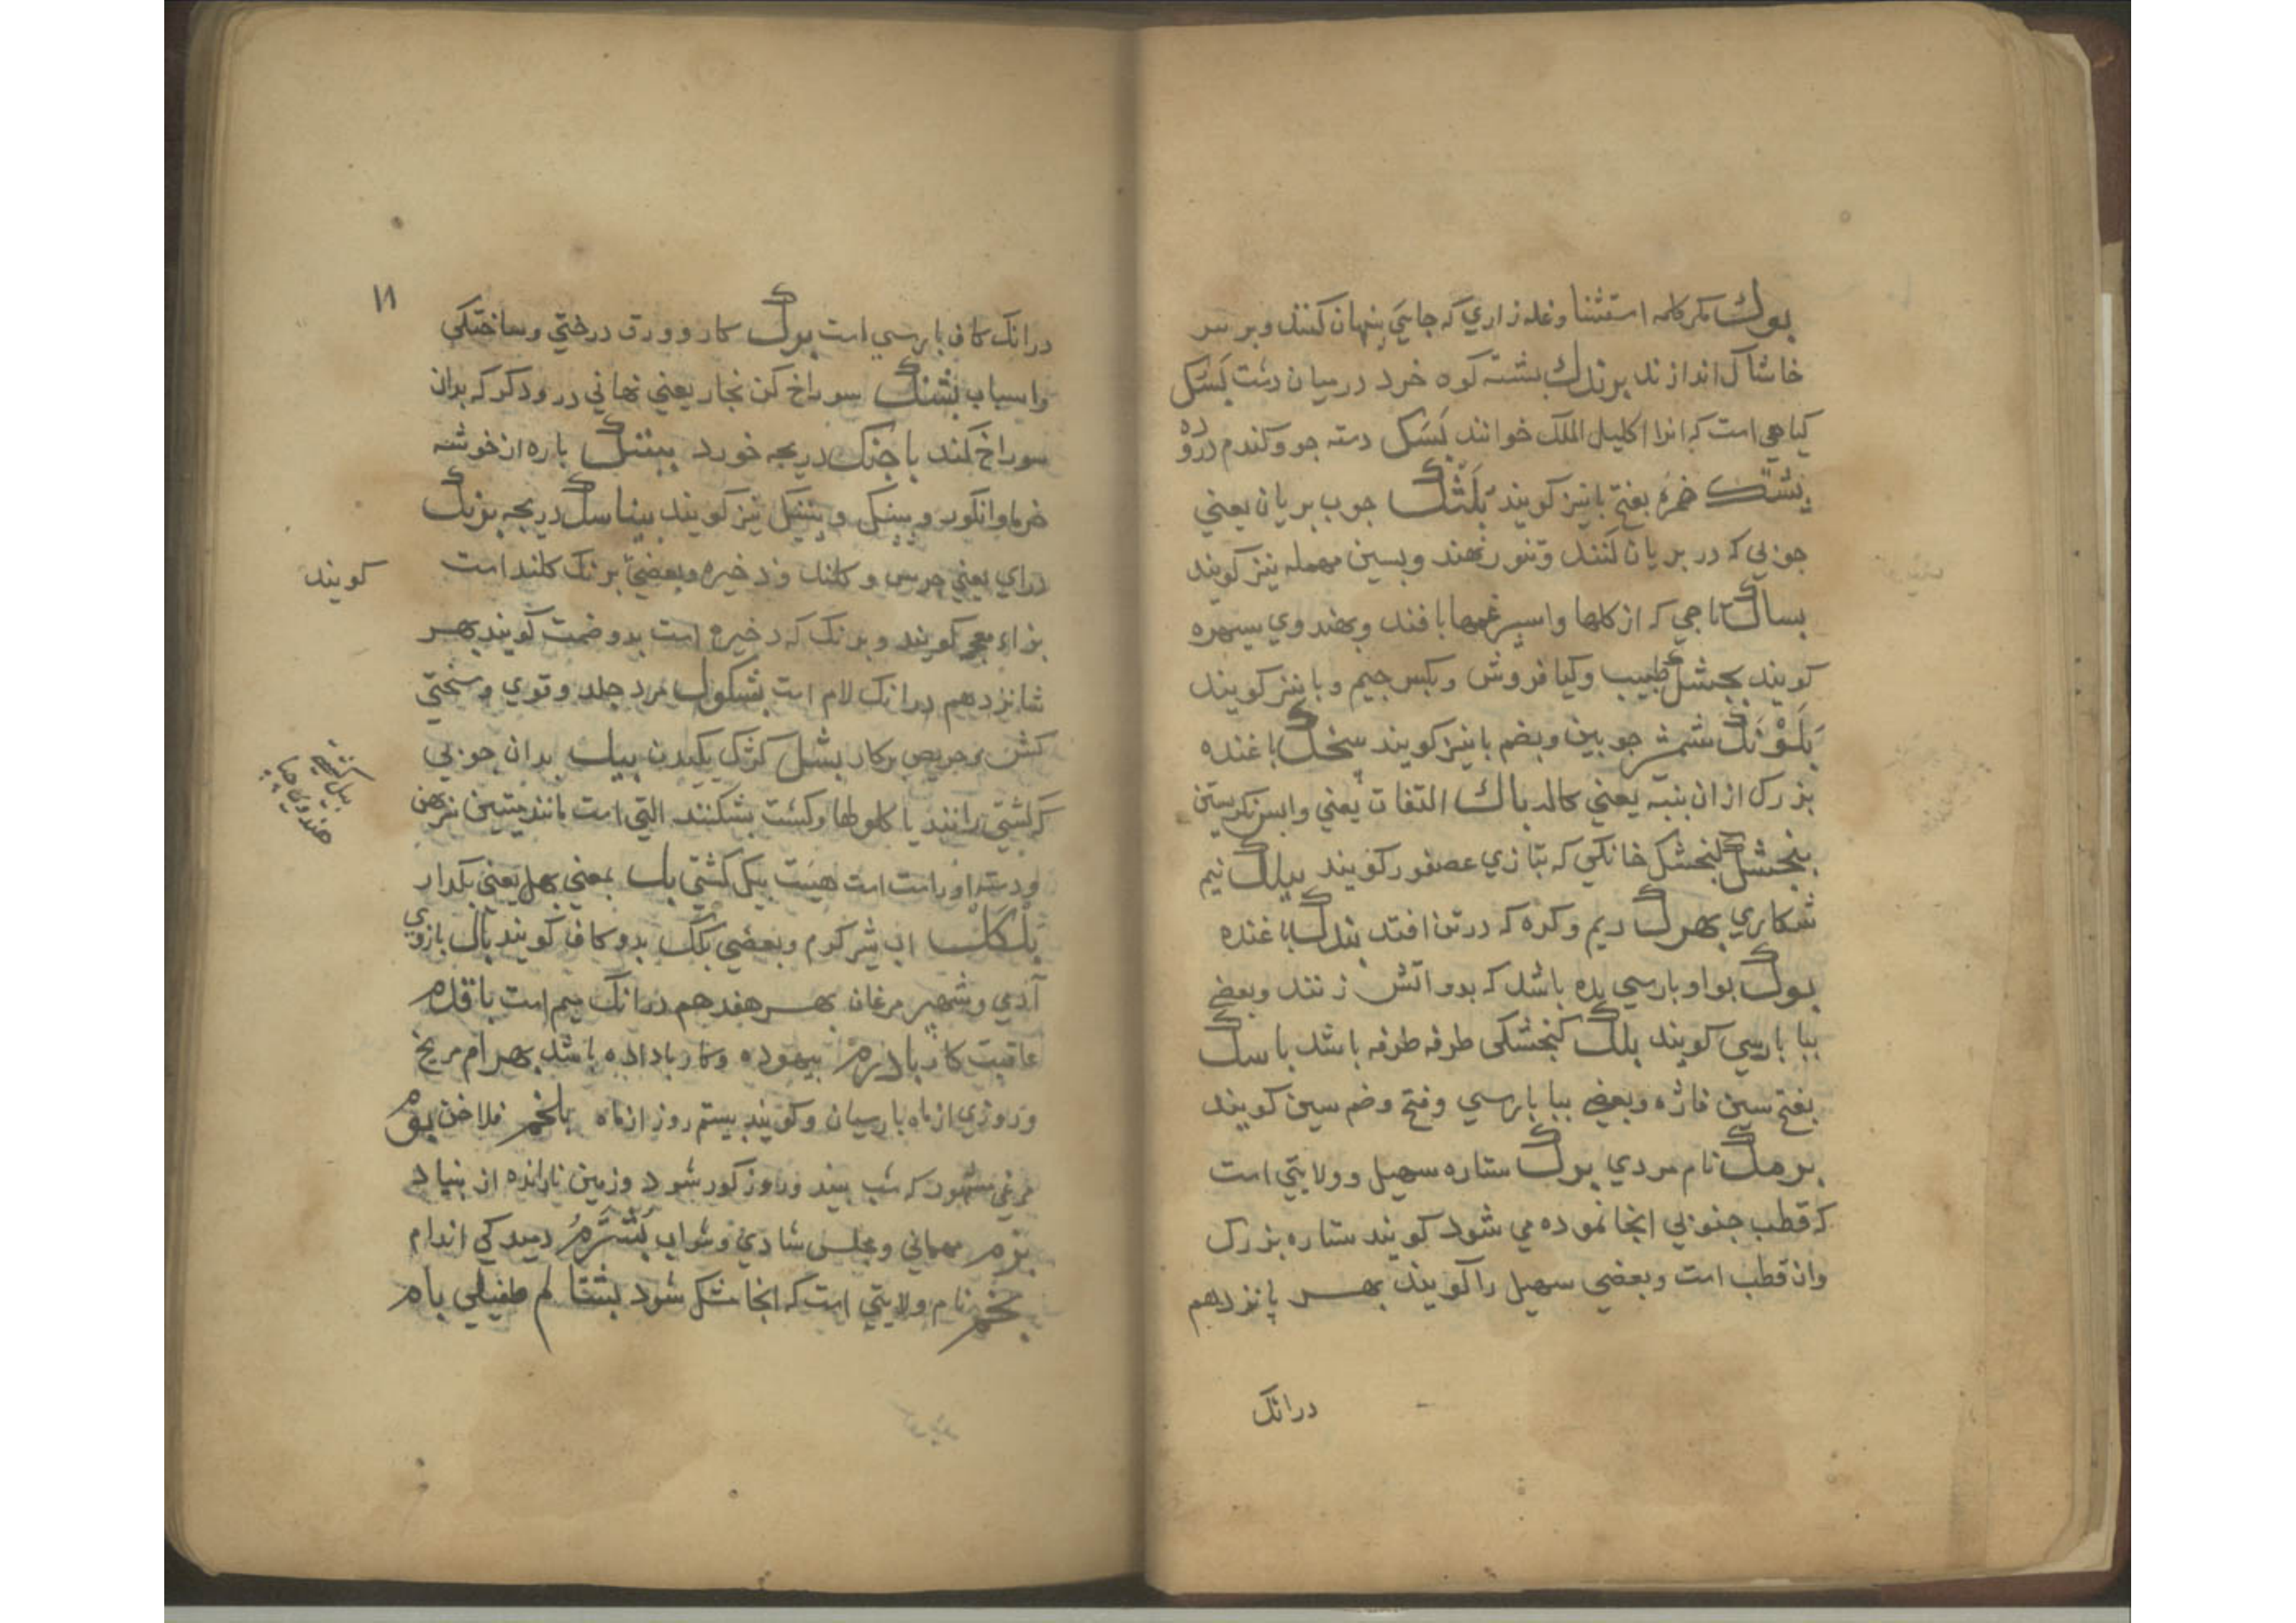 بوك مکر کلمه استثنا و غله زاري که جايي پنهان کنند و بر سر
خاشاك اندازند برندك پشته کوه خرد درميان دشت بَسَك
کياهي است که انرا اکليل الملك خوانند بَسَك دسته جو و کندم دروده
بشتك خمره بفتح با نيز کويند بَلَشك چوب بريان يعني
چوبي که در بريان کنند و تنور نهند و بسين مهمله نيز کويند
بساك تاجي که از کلها و اسپرغمها بافند و بهندوي سيهره
کويند بجشك طبيب و کيا فروش و بکسر جيم و با نيز کويند
بَلَوْنَك شمشير چوبين و بضم با نيز کويند بخك باغنده
بزرك از ان پنبه يعني کاله باك التفات يعني وابس نکريستن
بنجشك کنجشك خانکي که بتازي عصفور کويند بيلك نيم
شکاري بهرك ريم و کره که در تن افتد بندك باغنده
بوك بواو پارسي بده باشد که بدو اتش زنند و بعضي
ببا پارسي کويند بلك کنجشکي طرفه طرفه باشد باسك
بفتح سين فاژه و بعضي ببا پارسي و فتح و ضم سين کويند
برمك نام مردي برك ستاره سهيل و ولايتي است
که قطب جنوبي انجا نموده مي شود کويند ستاره بزرك
وان قطب است و بعضي سهيل را کويند بهر پانزدهم
درانك
۱۸
درانك کاف پارسي است برك کار و ورق درختي و ساختکي
واسياب بشنك سوراخ کن نجار يعني نهاني درودکر که بدان
سوراخ کند باجنك دريچه خورد بيننك باره از خوشه
خرما و انکور و بينك و بننك نيز کويند بيناسك دريچه بزنك
دراي يعني جرس و کلند و ذخيره و بعضي برنك کلند است کويند
بزاء معجم کويند و برنك که ذخيره است بدو ضمت کويند بهر
شانزدهم درانك لام است بشکول مرد جلد و قوي و سختي
کش و حريص بر کار بشل کژك يکيدن بيل بدان چوبي
که کشتي رانند يا کلولها و کشت بشکنند التي است مانند متين
و دسته او راست است هيئت بيل کشتي بل بمعني بهل يعني بکذار
بيل کشتي هندوي چپا
بلکك اب شير کرم و بعضي بکك بدو کاف کويند بال بازوي
آدمي و شهپر مرغان بهر هفدهم درانك ميم است بافدم
عاقبت کار بادرم بيهوده و کار باداده باشد بهرام مريخ
و روزي از ماه پارسيان و کويند بيستم روز از ماه بلخم فلاخن بوم
مرغي مشهور که شب بيند و روز کور شود و زمين نارانده از بنياد
بزم مهماني و مجلس شادي و شراب بَشتَرم دميدکي اندام
بخم نام ولايتي است که انجا مشك شود بشتالم طفيلي بام